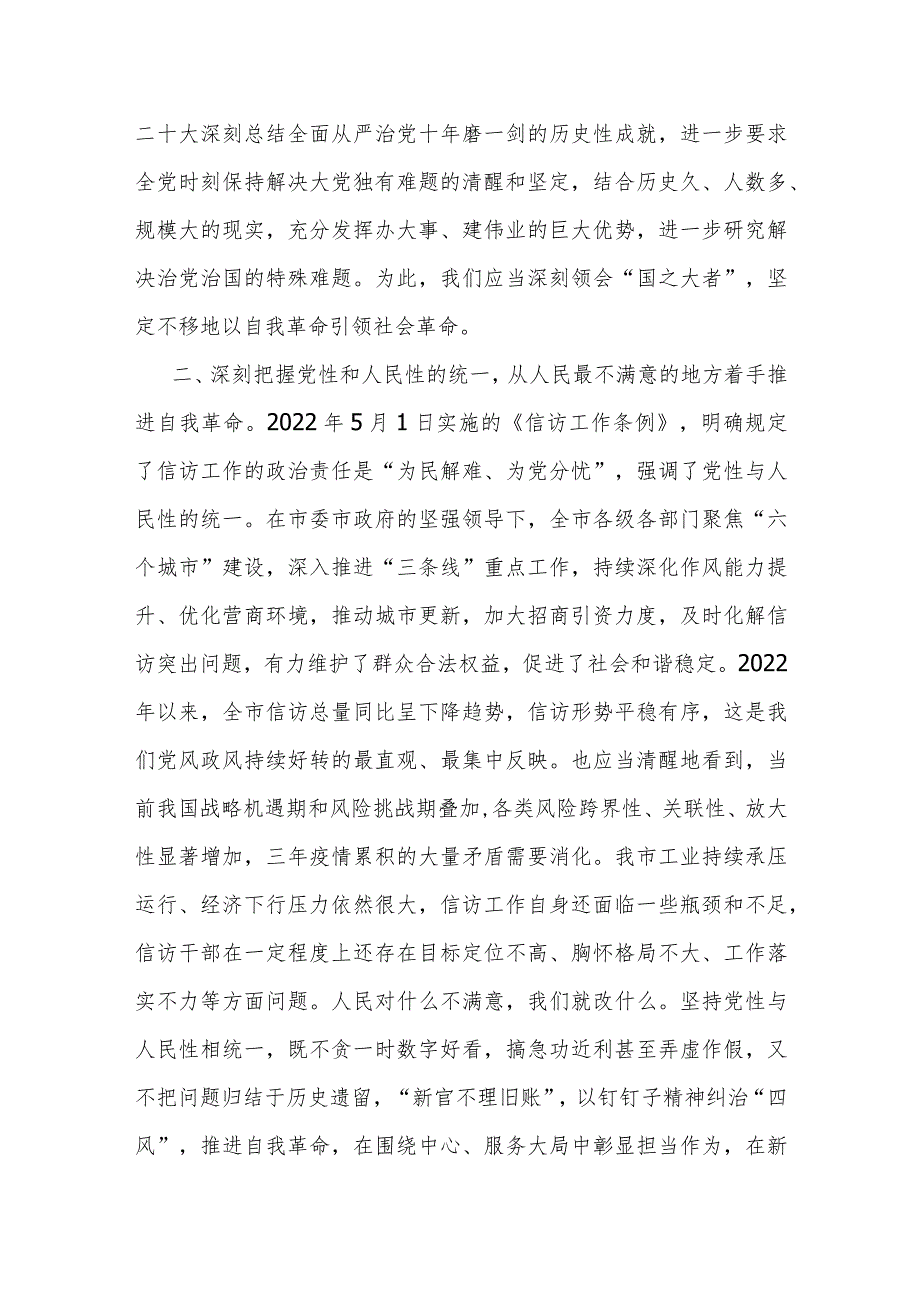 二十大深刻总结全面从严治党十年磨一剑的历史性成就，进一步要求
全党时刻保持解决大党独有难题的清醒和坚定，结合历史久、人数多、
规模大的现实，充分发挥办大事、建伟业的巨大优势，进一步研究解
决治党治国的特殊难题。为此，我们应当深刻领会“国之大者”，坚
定不移地以自我革命引领社会革命。
二、深刻把握党性和人民性的统一，从人民最不满意的地方着手推
进自我革命。2022 年 5 月 1 日实施的《信访工作条例》，明确规定
了信访工作的政治责任是“为民解难、为党分忧”，强调了党性与人
民性的统一。在市委市政府的坚强领导下，全市各级各部门聚焦“六
个城市”建设，深入推进“三条线”重点工作，持续深化作风能力提
升、优化营商环境，推动城市更新，加大招商引资力度，及时化解信
访突出问题，有力维护了群众合法权益，促进了社会和谐稳定。2022
年以来，全市信访总量同比呈下降趋势，信访形势平稳有序，这是我
们党风政风持续好转的最直观、最集中反映。也应当清醒地看到，当
前我国战略机遇期和风险挑战期叠加,各类风险跨界性、关联性、放大
性显著增加，三年疫情累积的大量矛盾需要消化。我市工业持续承压
运行、经济下行压力依然很大，信访工作自身还面临一些瓶颈和不足，
信访干部在一定程度上还存在目标定位不高、胸怀格局不大、工作落
实不力等方面问题。人民对什么不满意，我们就改什么。坚持党性与
人民性相统一，既不贪一时数字好看，搞急功近利甚至弄虚作假，又
不把问题归结于历史遗留，“新官不理旧账”，以钉钉子精神纠治“四
风”，推进自我革命，在围绕中心、服务大局中彰显担当作为，在新